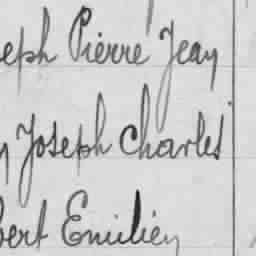 seph Pierre Jean
y Joseph Charles
bert Emilien